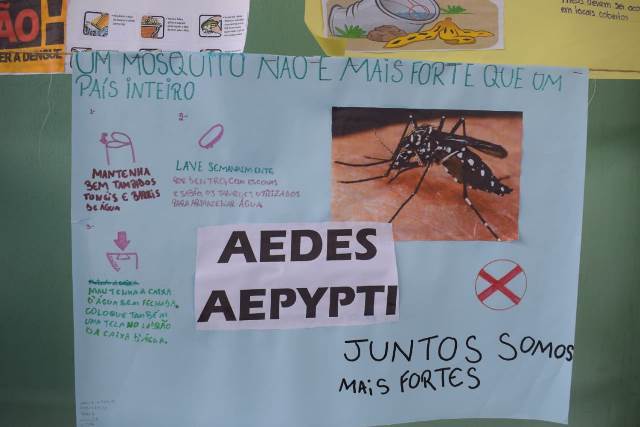 ÃO
ER A DENGUE
devem ser
em locais cobertos
UM MOSQUITO NÃO É MAIS FORTE QUE UM
PAÍS INTEIRO
1-
MANTENHA
BEM TAMPADOS
TONÉIS E BARRIS
DE ÁGUA
2-
LAVE SEMANALMENTE
POR DENTRO, COM ESCOVAS
E SABÃO OS TANQUES UTILIZADOS
PARA ARMAZENAR ÁGUA
3-
MANTENHA A CAIXA
D'ÁGUA BEM FECHADA.
COLOQUE TAMBÉM
UMA TELA NO LADRÃO
DA CAIXA D'ÁGUA.
AEDES
AEPYPTI
JUNTOS SOMOS
MAIS FORTES